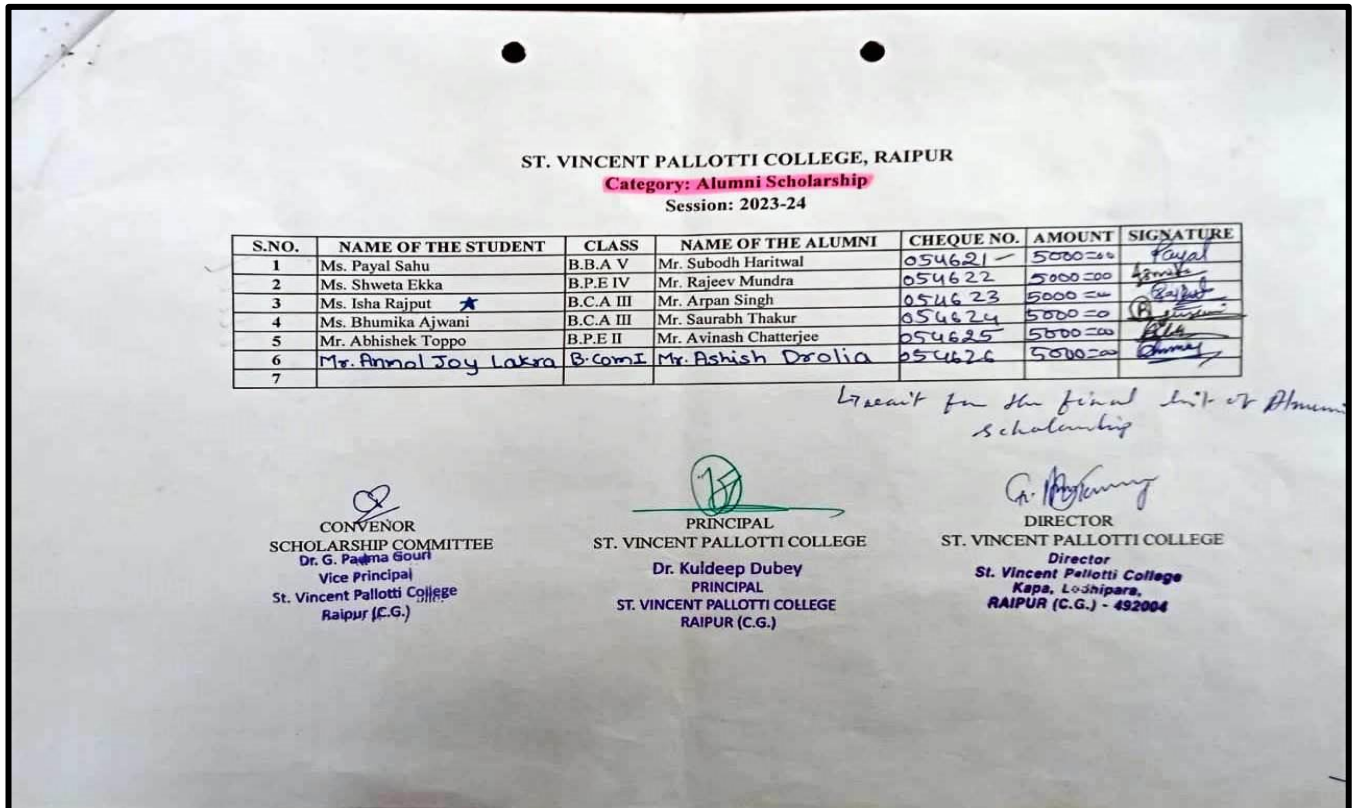 ST. VINCENT PALLOTTI COLLEGE, RAIPUR
Category: Alumni Scholarship
Session: 2023-24
S.NO. NAME OF THE STUDENT CLASS NAME OF THE ALUMNI CHEQUE NO. AMOUNT SIGNATURE
1 Ms. Payal Sahu B.B.A V Mr. Subodh Haritwal 054621 5000=00 Payal
2 Ms. Shweta Ekka B.P.E IV Mr. Rajeev Mundra 054622 5000=00
3 Ms. Isha Rajput B.C.A III Mr. Arpan Singh 054623 5000=00
4 Ms. Bhumika Ajwani B.C.A III Mr. Saurabh Thakur 054624 5000=0
5 Mr. Abhishek Toppo B.P.E II Mr. Avinash Chatterjee 054625 5000=00
6 Mr. Anmol Joy Lakra B.Com I Mr. Ashish Drolia 054626 5000=00
7
for the final list of Alumni
scholarship
CONVENOR
SCHOLARSHIP COMMITTEE
Dr. G. Padma Gouri
Vice Principal
St. Vincent Pallotti College
Raipur (C.G.)
PRINCIPAL
ST. VINCENT PALLOTTI COLLEGE
Dr. Kuldeep Dubey
PRINCIPAL
ST. VINCENT PALLOTTI COLLEGE
RAIPUR (C.G.)
DIRECTOR
ST. VINCENT PALLOTTI COLLEGE
Director
St. Vincent Pallotti College
Kapa, Lodhipara,
RAIPUR (C.G.) - 492004